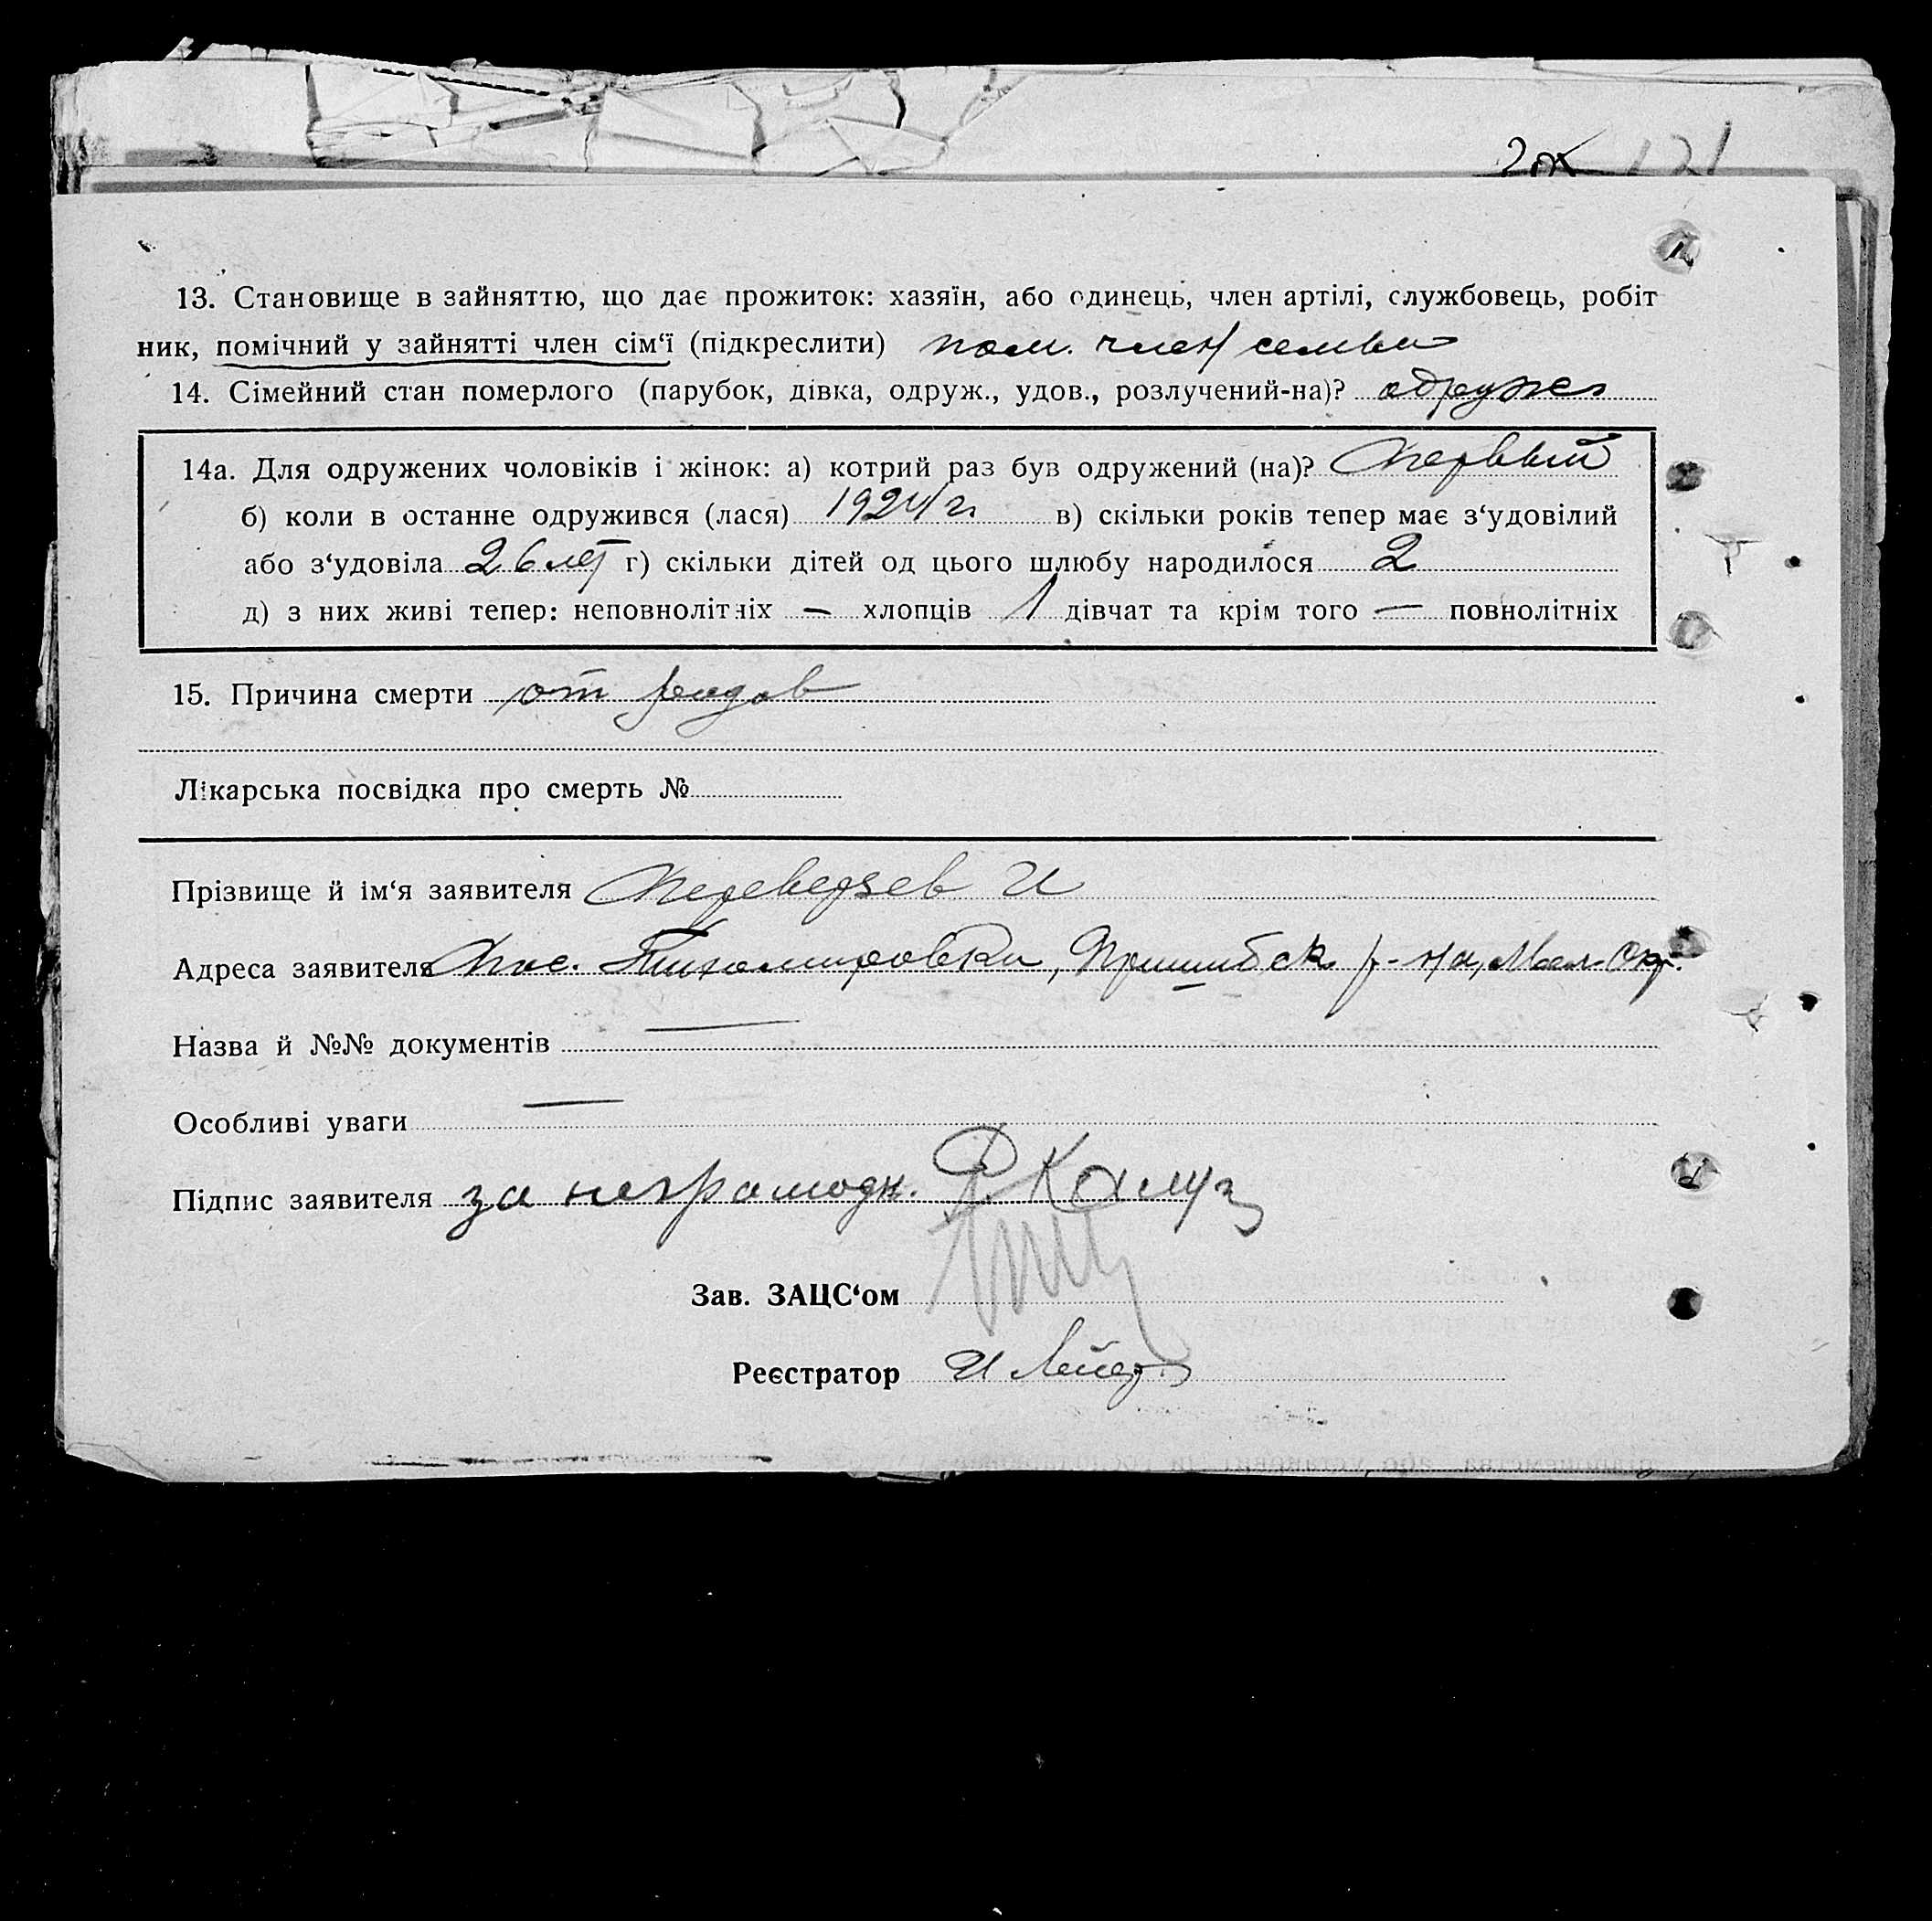 121
13. Становище в зайняттю, що дає прожиток: хазяїн, або одинець, член артілі, службовець, робіт
ник, помічний у зайнятті член сім‘ї (підкреслити) пом. член семьи
14. Сімейний стан померлого (парубок, дівка, одруж., удов., розлучений-на)? одружен
14а. Для одружених чоловіків і жінок: а) котрий раз був одружений (на)? Первый
б) коли в останне одружився (лася) 1924 г. в) скільки років тепер має з‘удовілий
або з‘удовіла 26 лет г) скільки дітей од цього шлюбу народилося 2
д) з них живі тепер: неповнолітніх — хлопців 1 дівчат та крім того — повнолітніх
15. Причина смерти от родов
Лікарська посвідка про смерть №
Прізвище й ім‘я заявителя И
Адреса заявителя Пос. Тихомировки, Пришибск. р-на, Мел. Окр.
Назва й №№ документів —
Особливі уваги —
Підпис заявителя за неграмотн.
Зав. ЗАЦС‘ом
Реєстратор И